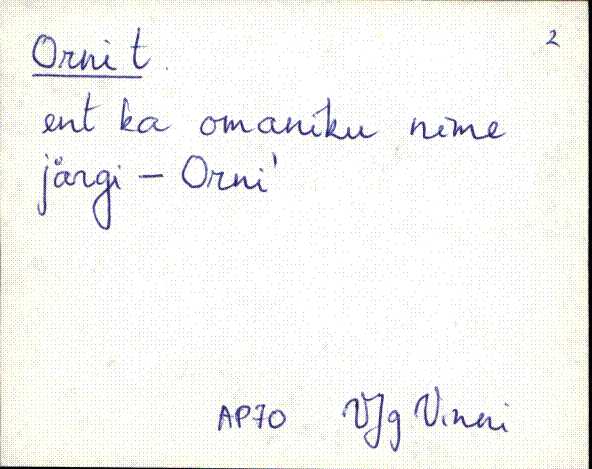 2
Orni t.
ent ka omaniku nime
järgi – Orni'
AP70 VJg Vinni